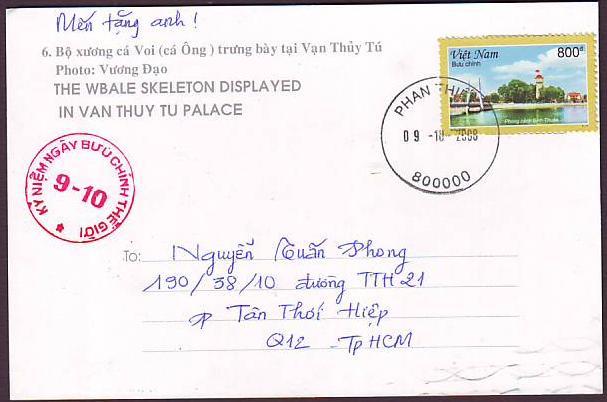 Mến tặng anh!
6. Bộ xương cá Voi (cá Ông) trưng bày tại Vạn Thủy Tú
Photo: Vương Đạo
THE WBALE SKELETON DISPLAYED
IN VAN THUY TU PALACE
Việt Nam
Bưu chính
800đ
Phong cảnh Bình Thuận
PHAN THIẾT
09-10-2008
800000
KỶ NIỆM NGÀY BƯU CHÍNH THẾ GIỚI
9-10
To: Nguyễn Tuấn Phong
190/38/10 đường TTH 21
P Tân Thới Hiệp
Q12 - Tp HCM